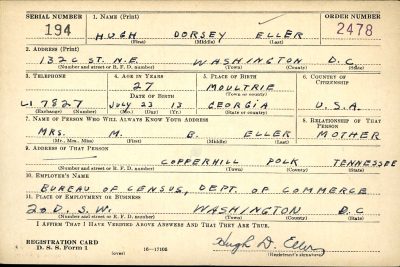 SERIAL NUMBER 1. NAME (Print) ORDER NUMBER
194 HUGH DORSEY ELLER 2478
(First) (Middle) (Last)
2. ADDRESS (Print)
132 C ST. N.E. WASHINGTON D.C
(Number and street or R. F. D. number) (Town) (County) (State)
3. TELEPHONE 4. AGE IN YEARS 5. PLACE OF BIRTH 6. COUNTRY OF CITIZENSHIP
27 MOULTRIE
DATE OF BIRTH (Town or county)
LI 7827 JULY 23 13 GEORGIA U.S.A.
(Mo.) (Day) (Yr.) (State or country)
7. NAME OF PERSON WHO WILL ALWAYS KNOW YOUR ADDRESS 8. RELATIONSHIP OF THAT PERSON
MRS. M. B. ELLER MOTHER
(Mr., Mrs., Miss) (First) (Middle) (Last)
9. ADDRESS OF THAT PERSON
COPPERHILL POLK TENNESSEE
(Number and street or R. F. D. number) (Town) (County) (State)
10. EMPLOYER'S NAME
BUREAU OF CENSUS, DEPT. OF COMMERCE
11. PLACE OF EMPLOYMENT OR BUSINESS
2ND D. S.W. WASHINGTON D.C
(Number and street or R. F. D. number) (Town) (County) (State)
I AFFIRM THAT I HAVE VERIFIED ABOVE ANSWERS AND THAT THEY ARE TRUE.
REGISTRATION CARD
D. S. S. Form 1 (over) 16—17105 Hugh D. Eller
(Registrant's signature)